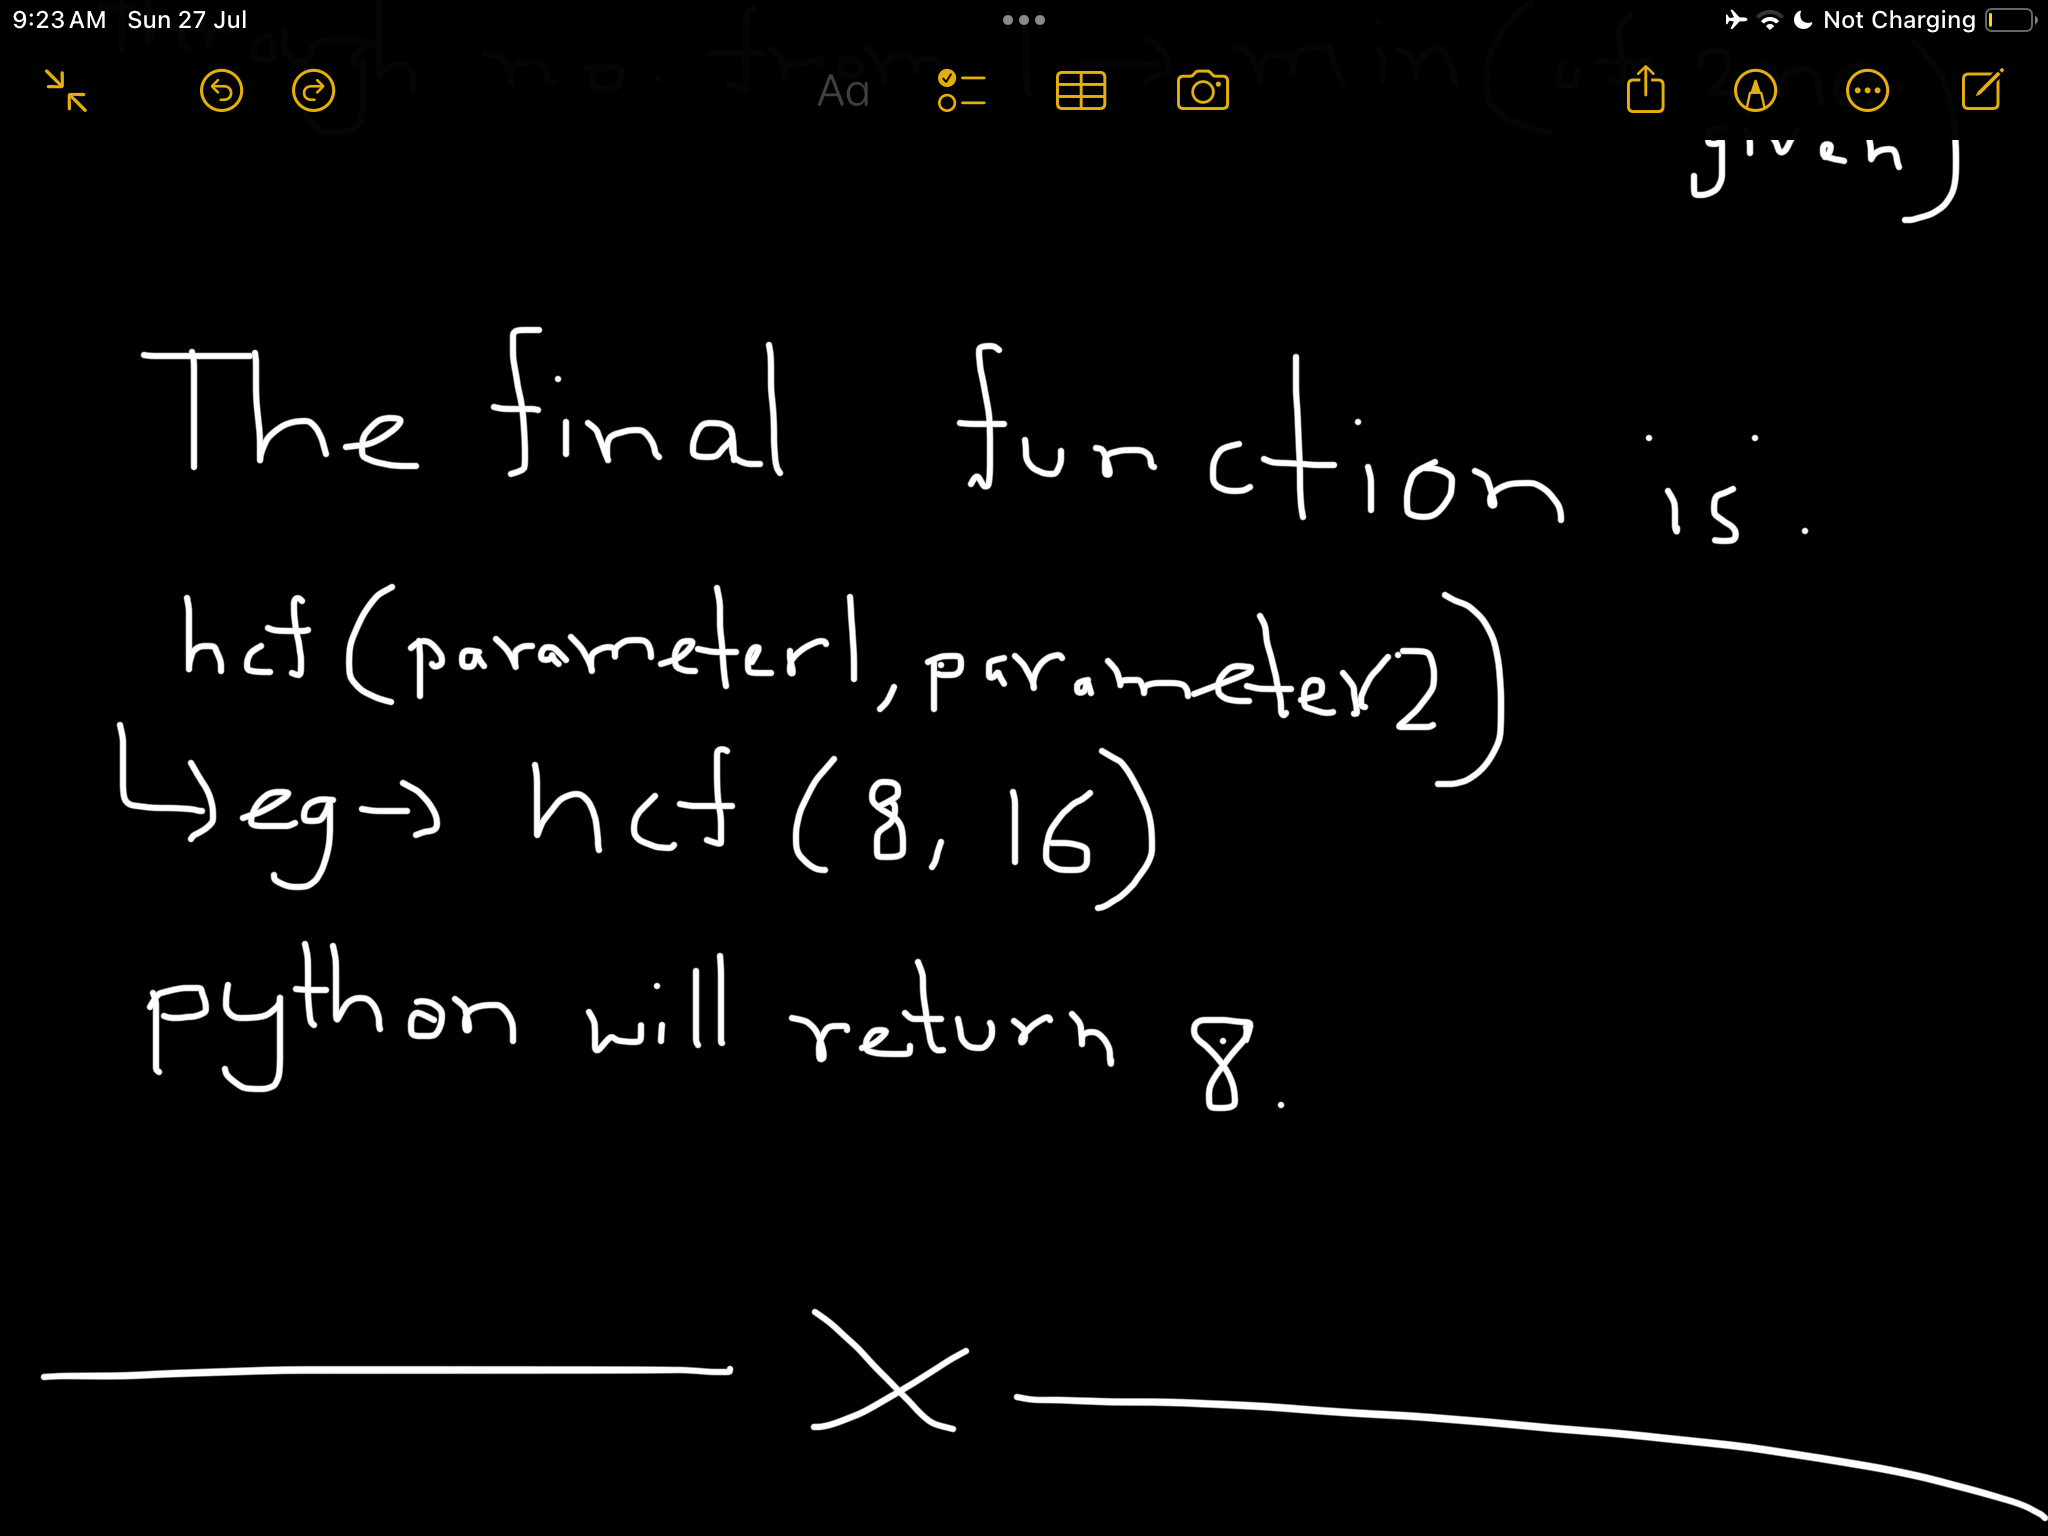 9:23 AM Sun 27 Jul
Not Charging
Aa
through no. from 1 → min (of 2 no.
given)
The final function is.
hcf (parameter1, parameter2)
↳ eg → hcf (8, 16)
python will return 8.
X